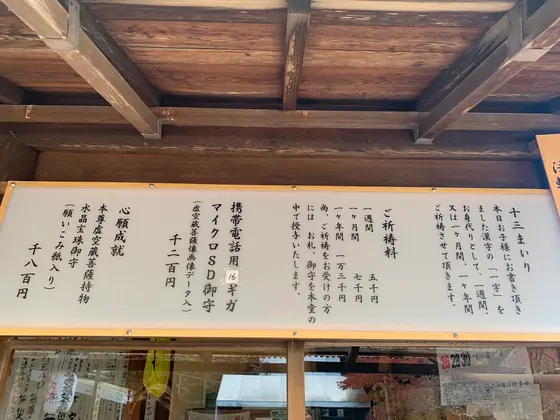 十三まいり
本日お子様にお書き頂き
ました漢字の「一字」を
お身代りとして、一週間、
又は一ヶ月間、一ヶ年間
ご祈祷させて頂きます。
ご祈祷料
一週間 五千円
一ヶ月間 七千円
一ヶ年間 一万三千円
尚、ご祈祷をお受けの方
には お札、御守を本堂の
中で授与いたします。
携帯電話用16ギガ
マイクロSD御守
(虚空蔵菩薩像画像データ入)
千二百円
心願成就
本尊虚空蔵菩薩持物
水晶宝珠御守
(願いこみ紙入り)
千八百円
28 29 30